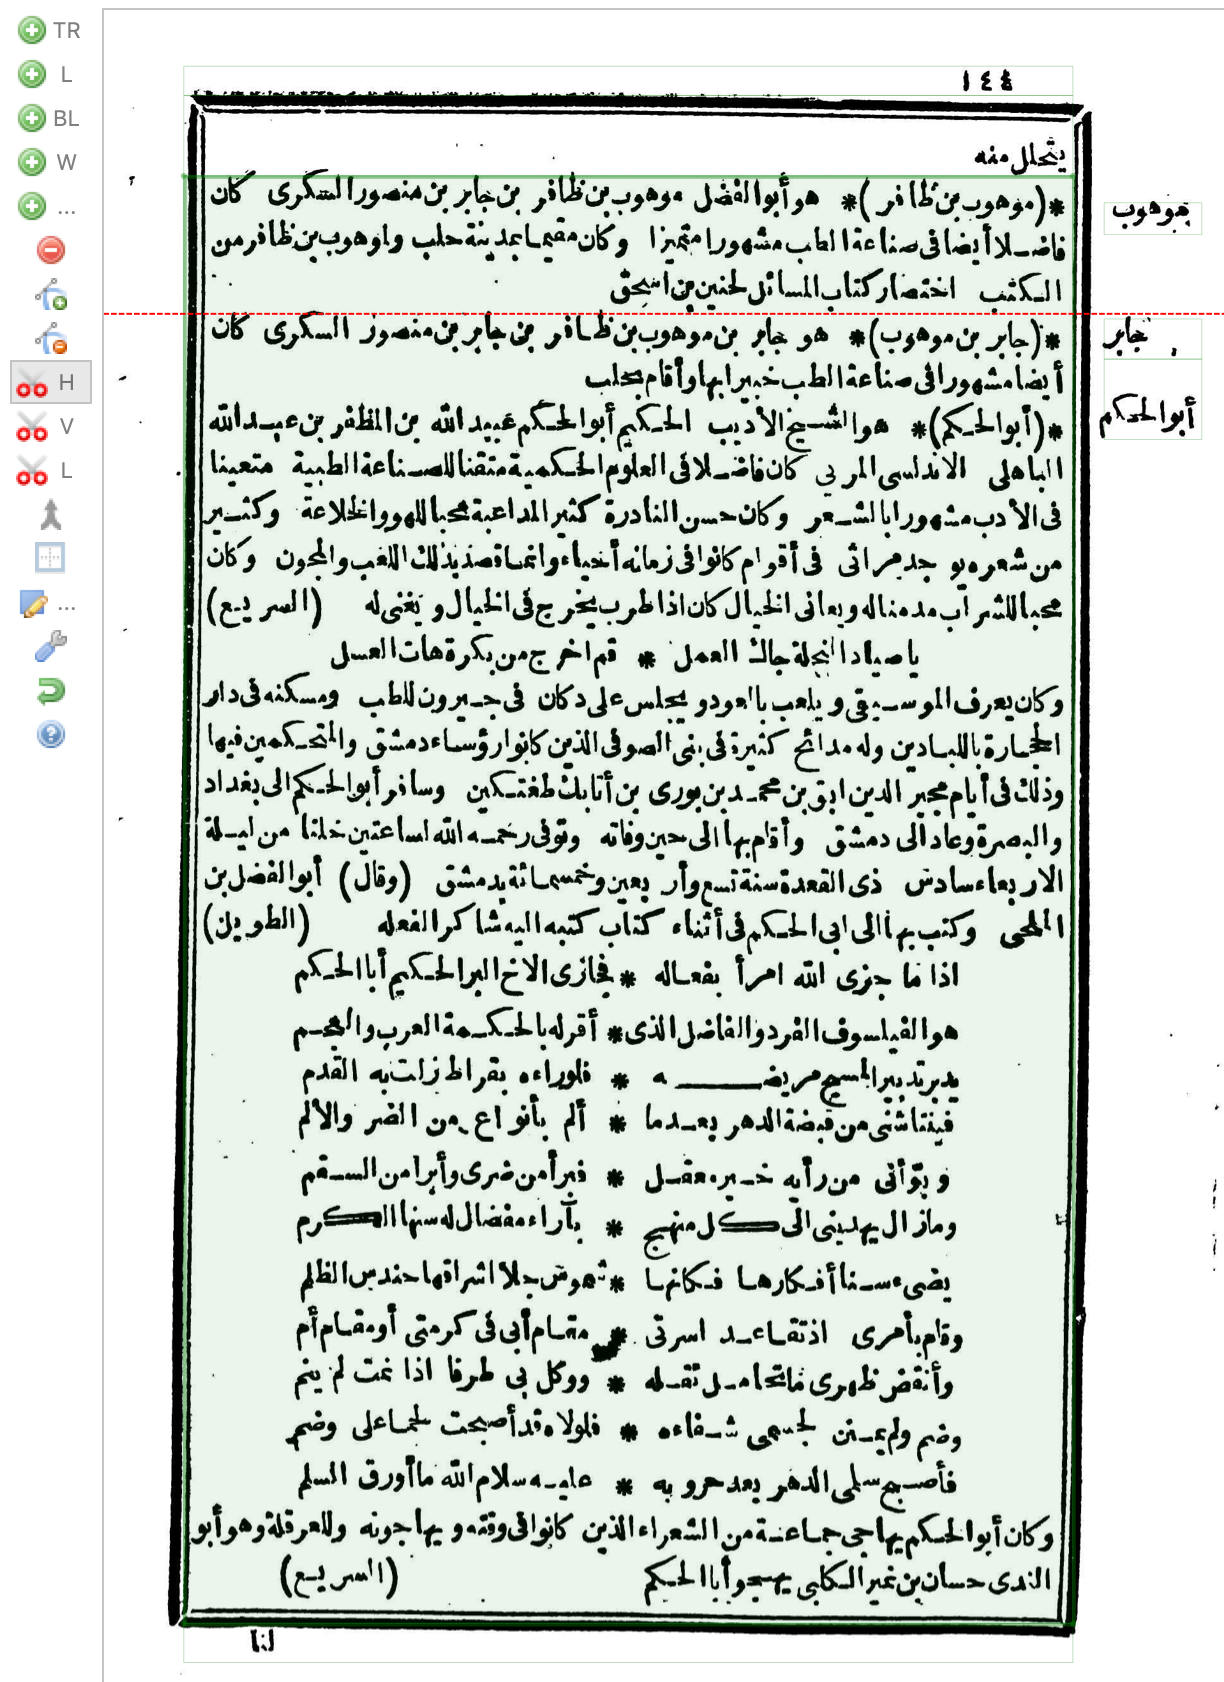 TR
L
BL
W
...
H
V
L
...
١٤٤
يتحلل منه
*(موهوب بن ظافر)* هو أبو الفضل موهوب بن ظافر بن جابر بن منصور السكرى كان
فاضلا أيضا فى صناعة الطب مشهورا متميزا وكان مقيما بمدينة حلب ولموهوب بن ظافر من
الكتب اختصار كتاب المسائل لحنين بن اسحق
*(جابر بن موهوب)* هو جابر بن موهوب بن ظافر بن جابر بن منصور السكرى كان
أيضا مشهورا فى صناعة الطب خبيرا بها وأقام بحلب
*(أبو الحكم)* هو الشيخ الأديب الحكيم أبو الحكم عبيد الله بن المظفر بن عبد الله
الباهلى الاندلسى المربى كان فاضلا فى العلوم الحكمية متقنا للصناعة الطبية متعينا
فى الأدب مشهورا بالشعر وكان حسن النادرة كثير المداعبة محبا للهو والخلاعة وكثير
من شعره يوجد مراثى فى أقوام كانوا فى زمانه أحياء وانما قصد بذلك اللعب والمجون وكان
محبا للشراب مدمنا له ويعانى الخيال كان اذا طرب يخرج فى الخيال ويغنى له (السريع)
يا صياد النحلة جاك العمل * قم اخرج من بكرة هات العسل
وكان يعرف الموسيقى ويلعب بالعود ويجلس على دكان فى جيرون للطب ومسكنه فى دار
الحجارة باللبادين وله مدائح كثيرة فى بنى الصوفى الذين كانوا رؤساء دمشق والمتحكمين فيها
وذلك فى أيام مجير الدين ابق بن محمد بن بورى بن أتابك طغتكين وسافر أبو الحكم الى بغداد
والبصرة وعاد الى دمشق وأقام بها الى حين وفاته وتوفى رحمه الله لساعتين خلتا من ليلة
الاربعاء سادس ذى القعدة سنة تسع وأربعين وخمسمائة بدمشق (وقال) أبو الفضل بن
الملحى وكتب بها الى ابى الحكم فى أثناء كتاب كتبه اليه شاكرا لفعله (الطويل)
اذا ما جزى الله امرأ بفعاله * فجازى الاخ البر الحكيم أبا الحكم
هو الفيلسوف الفرد والفاضل الذى * أقر له بالحكمة العرب والعجم
يدبر تدبير المسيح مريضه * فلو راءه بقراط زلت به القدم
فينتاشنى من قبضة الدهر بعدما * ألم بأنواع من الضر والألم
وبوّأنى من رأيه خير معقل * فبرأ من ضرى وأبرا من السقم
ومازال يهدينى الى كل منهج * بآراء مفضال له سنها الكرم
يضىء سنا أفكارها فكانها * شموس جلا اشراقها حندس الظلم
وقام بأمرى اذ تقاعد اسرتى * مقام أبى فى كرمتى أو مقام أم
وأنقض ظهرى ما تحامل ثقله * ووكل بى طرفا اذا نمت لم ينم
وضم ولم يمنن لجسمى شفاءه * فلولاه قد أصبحت لحما على وضم
فأصبح سلمى الدهر بعد حروبه * عليه سلام الله ما أورق السلم
وكان أبو الحكم يهاجى جماعة من الشعراء الذين كانوا فى وقته ويهاجونه وللعرقلة وهو أبو
الندى حسان بن نمير الكلبى يهجو أبا الحكم (السريع)
لنا
موهوب
جابر
أبو الحكم